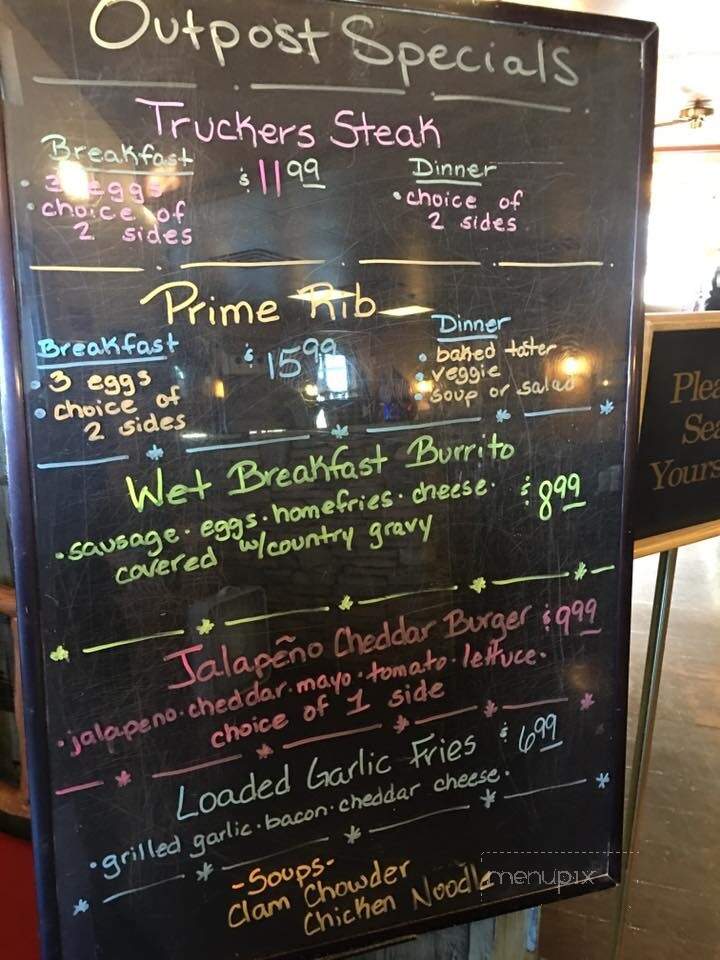 Outpost Specials
Truckers Steak
Breakfast
$11.99
Dinner
• 3 eggs
• choice of
2 sides
• choice of
2 sides
Prime Rib
Breakfast
$15.99
Dinner
• 3 eggs
• choice of
2 sides
• baked tater
• veggie
• soup or salad
Wet Breakfast Burrito
• sausage • eggs • homefries • cheese •
covered w/country gravy
$8.99
Jalapeño Cheddar Burger $9.99
• jalapeno • cheddar • mayo • tomato • lettuce •
choice of 1 side
Loaded Garlic Fries $6.99
• grilled garlic • bacon • cheddar cheese •
-Soups-
Clam Chowder
Chicken Noodle
menupix